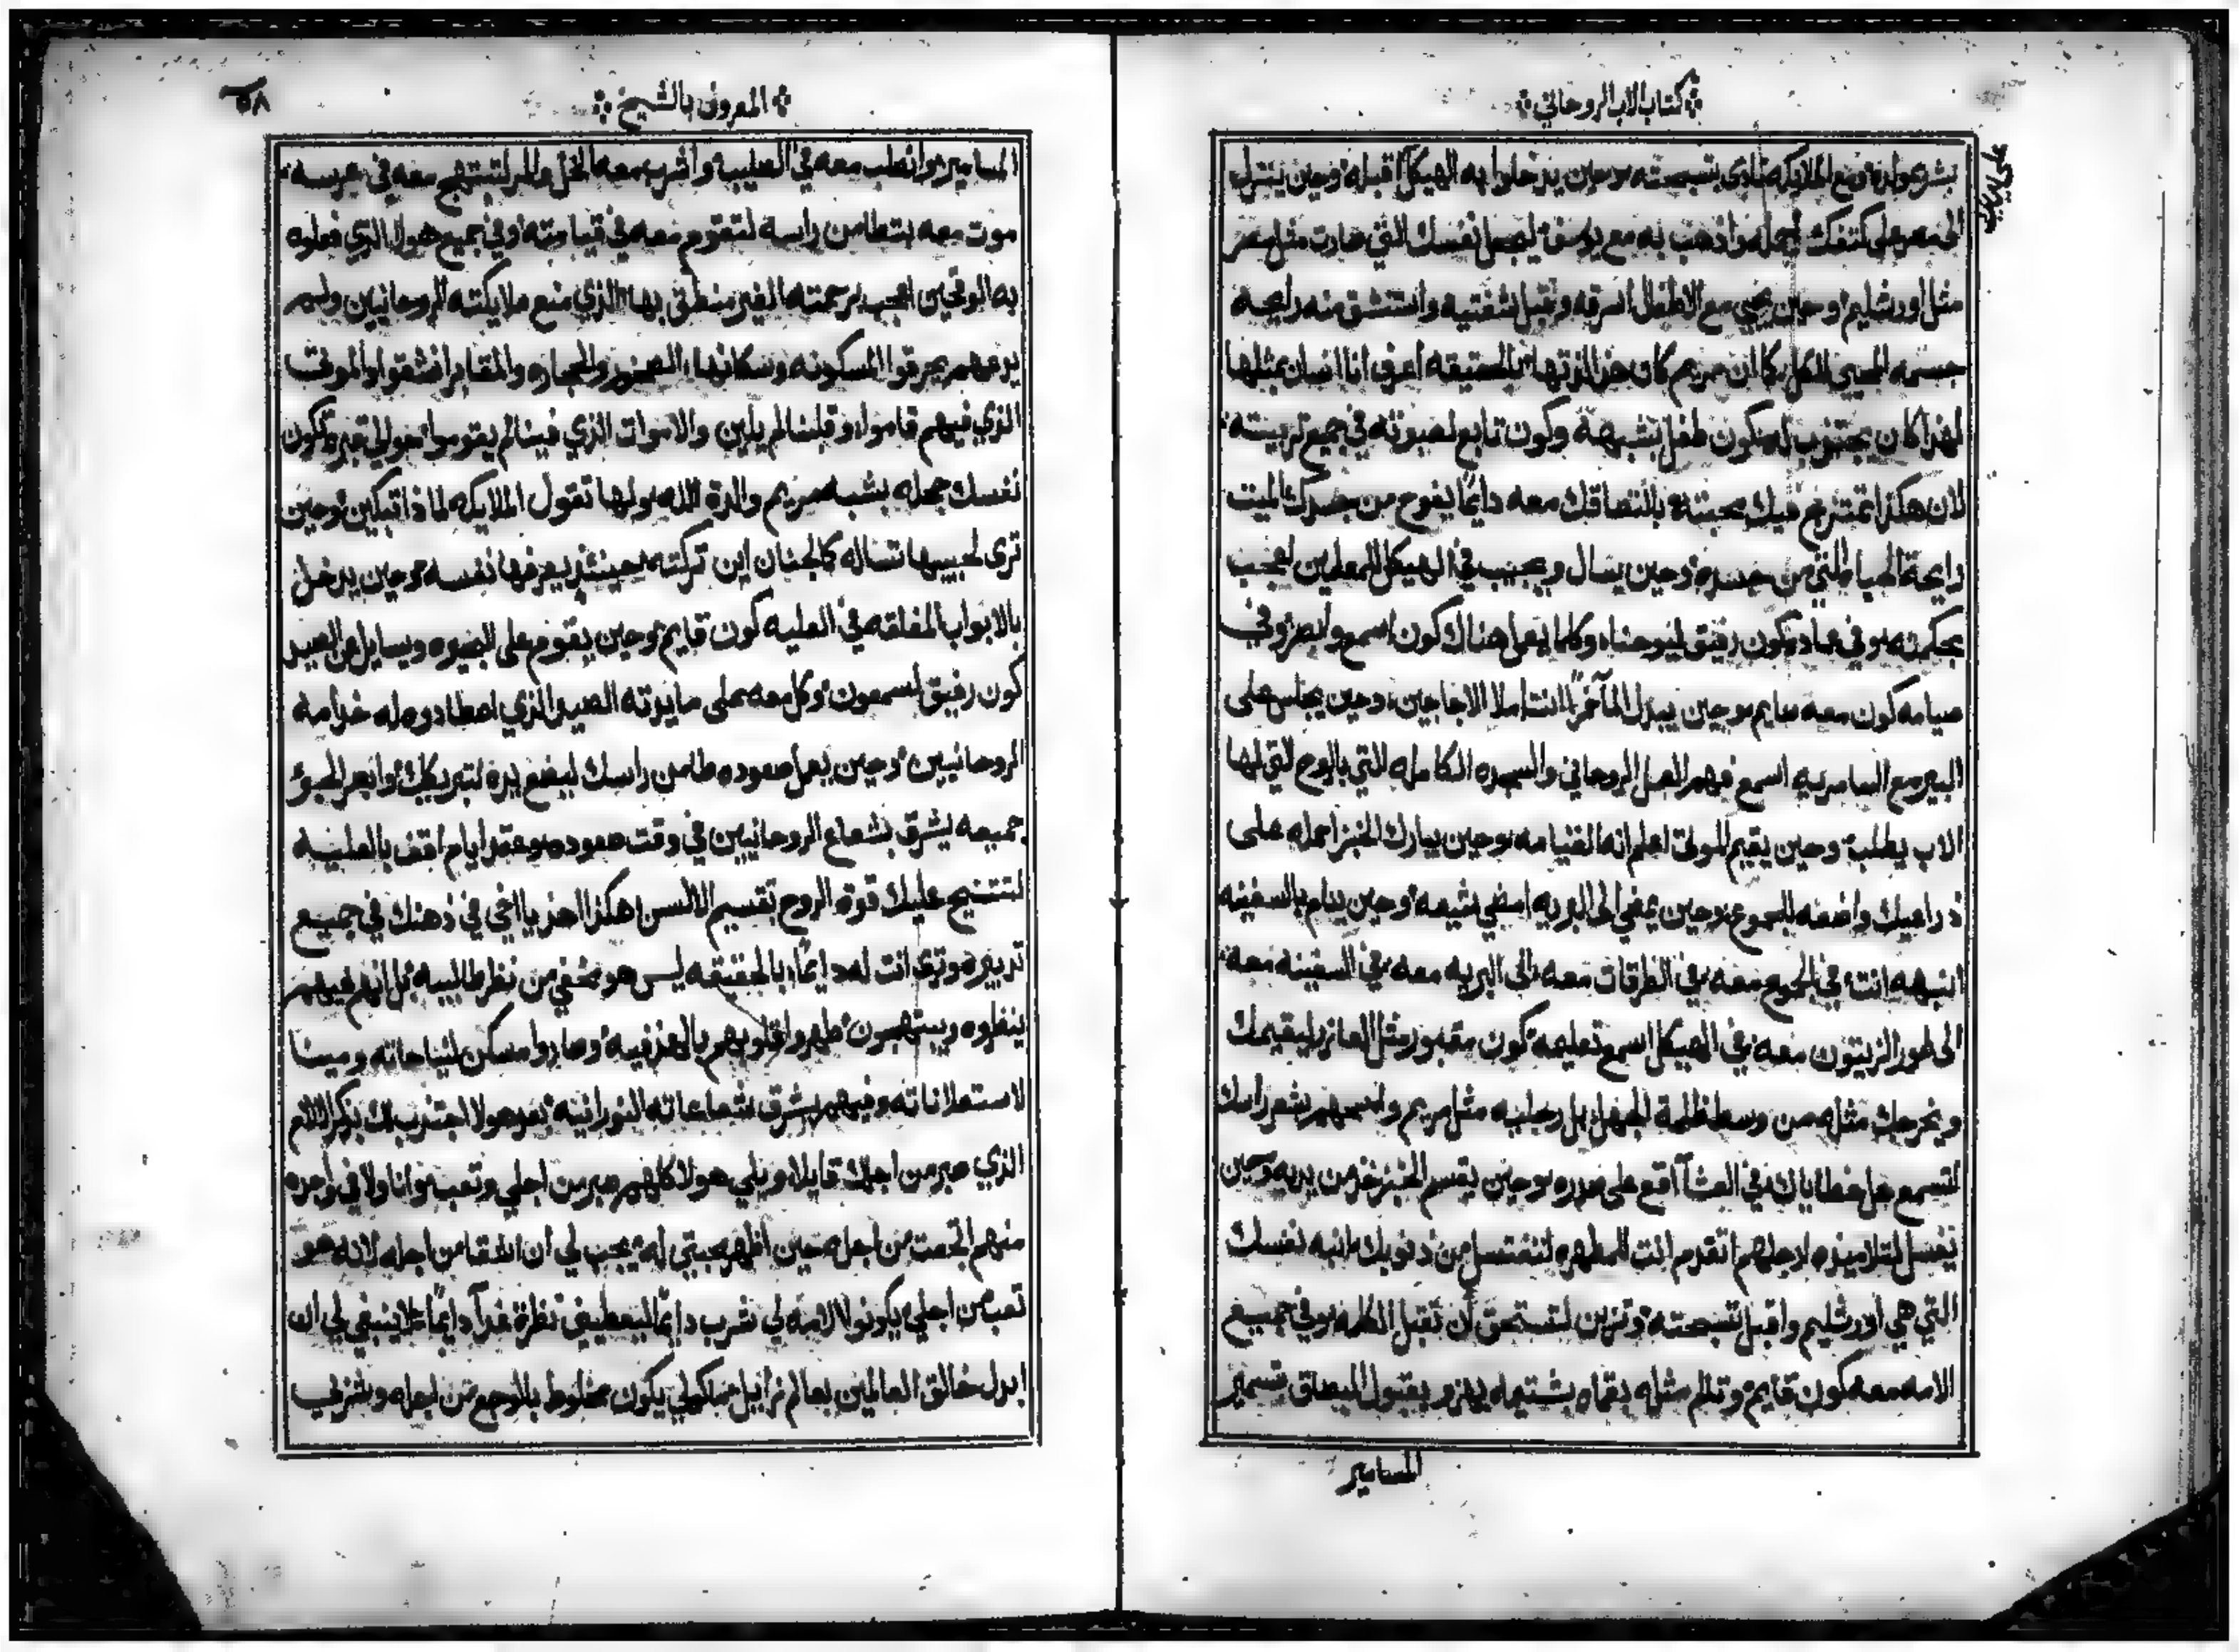 كتاب الاب الروحاني
بشر بمولده مع الملايكه نادي بتسبحته وحين يدخلوا به الهيكل اقبله وحين ينزل
لمصر على كتفك احمله واذهب به مع يوسف ليجعل نفسك التي صارت مثل مصر
مثل اورشليم وحين يحبي مع الاطفال اسرقه وقبل شفتيه واستنشق منه رايحة
جسمه المحيي للكل كما ان مريم كان
لهذا كان يجتذب لتكون طفل بشبهه وكون تابع لصورته في جميع تربيته
لان هكذا تمتزج فيك محبته بالتصاقك معه دايمًا يفوح من جسدك الميت
رايحة الحياه التي من جسده وحين يسال ويجيب في الهيكل للمعلمين تعجب
بحكمته وفي عماده كون رفيق ليوحنا وكلما يعمل هناك كون اسمع وابصر وفي
صيامه كون معه صايم وحين يبدل المآ خمرًا انت املا الاجاجين وحين يجلس على
البير مع السامريه اسمع فهم العمل الروحاني والسجده الكامله التي بالروح التي لها
الاب يطلب وحين يقيم الموتى اعلم انه القيامه وحين يبارك الخبز احمله على
ذراعيك واضعه للجموع وحين يمضي الى البريه امضي تتبعه وحين ينام بالسفينه
انبهه انت في الجموع معه في الطرقات معه الى البريه معه في السفينه معه
الى طور الزيتون معه في الهيكل اسمع تعليمه كون مقبور مثل العازر ليقيمك
ويخرجك مثله من وسط ظلمة الجهل بل رجليه مثل مريم وامسحهم بشعر راسك
لتسمع حل خطاياك في العشآ اقع على صدره وحين يقسم الخبز خذ من يديه وحين
يغسل لتلاميذه ارجلهم اتقدم انت للمطهره لتغتسل من ذنوبك انبه نفسك
التي هي اورشليم واقبل تسبحته وتزين لتستحق ان تقبل الكلمه وفي جميع
الامه معه كون قايم وتالم مثله
المسامير
المعروف بالشيخ
٥٨
المسامير وانصلب معه في الصليب واشرب معه الخل والمر لتبتهج معه في عرسه
موت معه بتطامن راسه لتقوم معه في قيامته وفي جميع هولا الذي فعلوه
به الوقحين اعجب برحمته الغير منطق بها الذي منع ملايكته الروحانيين ولم
يدعهم يحرقوا المسكونه وسكانها الصخور والحجاره والمقابر انشقوا والموتى
الذي فيهم قاموا وقلبنا لم يلين والاموات الذي فينا لم يقوموا حوالي قبره تكون
نفسك جمله بشبه مريم والدة الاله ولها تقول الملايكه لماذا تبكين وحين
ترى لحبيبها تساله كالجنان اين تركته حينئذٍ يعرفها نفسه وحين يدخل
بالابواب المغلقه في العليه كون قايم وحين يقوم على البحيره ويسايل عن الصيد
كون رفيق لسمعون وكل معه على مايدته الصيد الذي اصطادوه له خدامه
الروحانيين وحين يعمل صعوده طامن راسك ليضع يده لتبريكك وابصر الجو
جميعه يشرق بشعاع الروحانيين في وقت صعوده وعشر ايام اقف بالعليه
لتنسج عليك قوة الروح تقسيم الالسن هكذا اهذ يا اخي في ذهنك في جميع
تدبيره وترى انت له دايمًا بالحقيقه ليس هو مخفي من نظر طالبيه بل انهم فيهم
ينظروه ويبتهجون طهروا قلوبهم بالهذ فيه وصاروا مسكن لنياحاته ومينا
لاستعلاناته وفيهم يشرق شعاعاته النورانيه بعد هولا اجتذب لك بذكر الالام
الذي صبر من اجلك قايلا ويلي هولا كلهم صبر من اجلي وتعب وانا ولا في واحده
منهم اتجعت من اجله حين اظهر محبتي له يجب لي ان اشقا من اجله لانه هو
تعب من اجلي يكونوا الامه لي شرب دايمًا ليعطيني نظرة غدآ دايمًا لا ينبغي لي ان
ابدل خالق العالمين بعالم زايل ماكولي يكون مخلوط بالاوجع من اجله وشربي